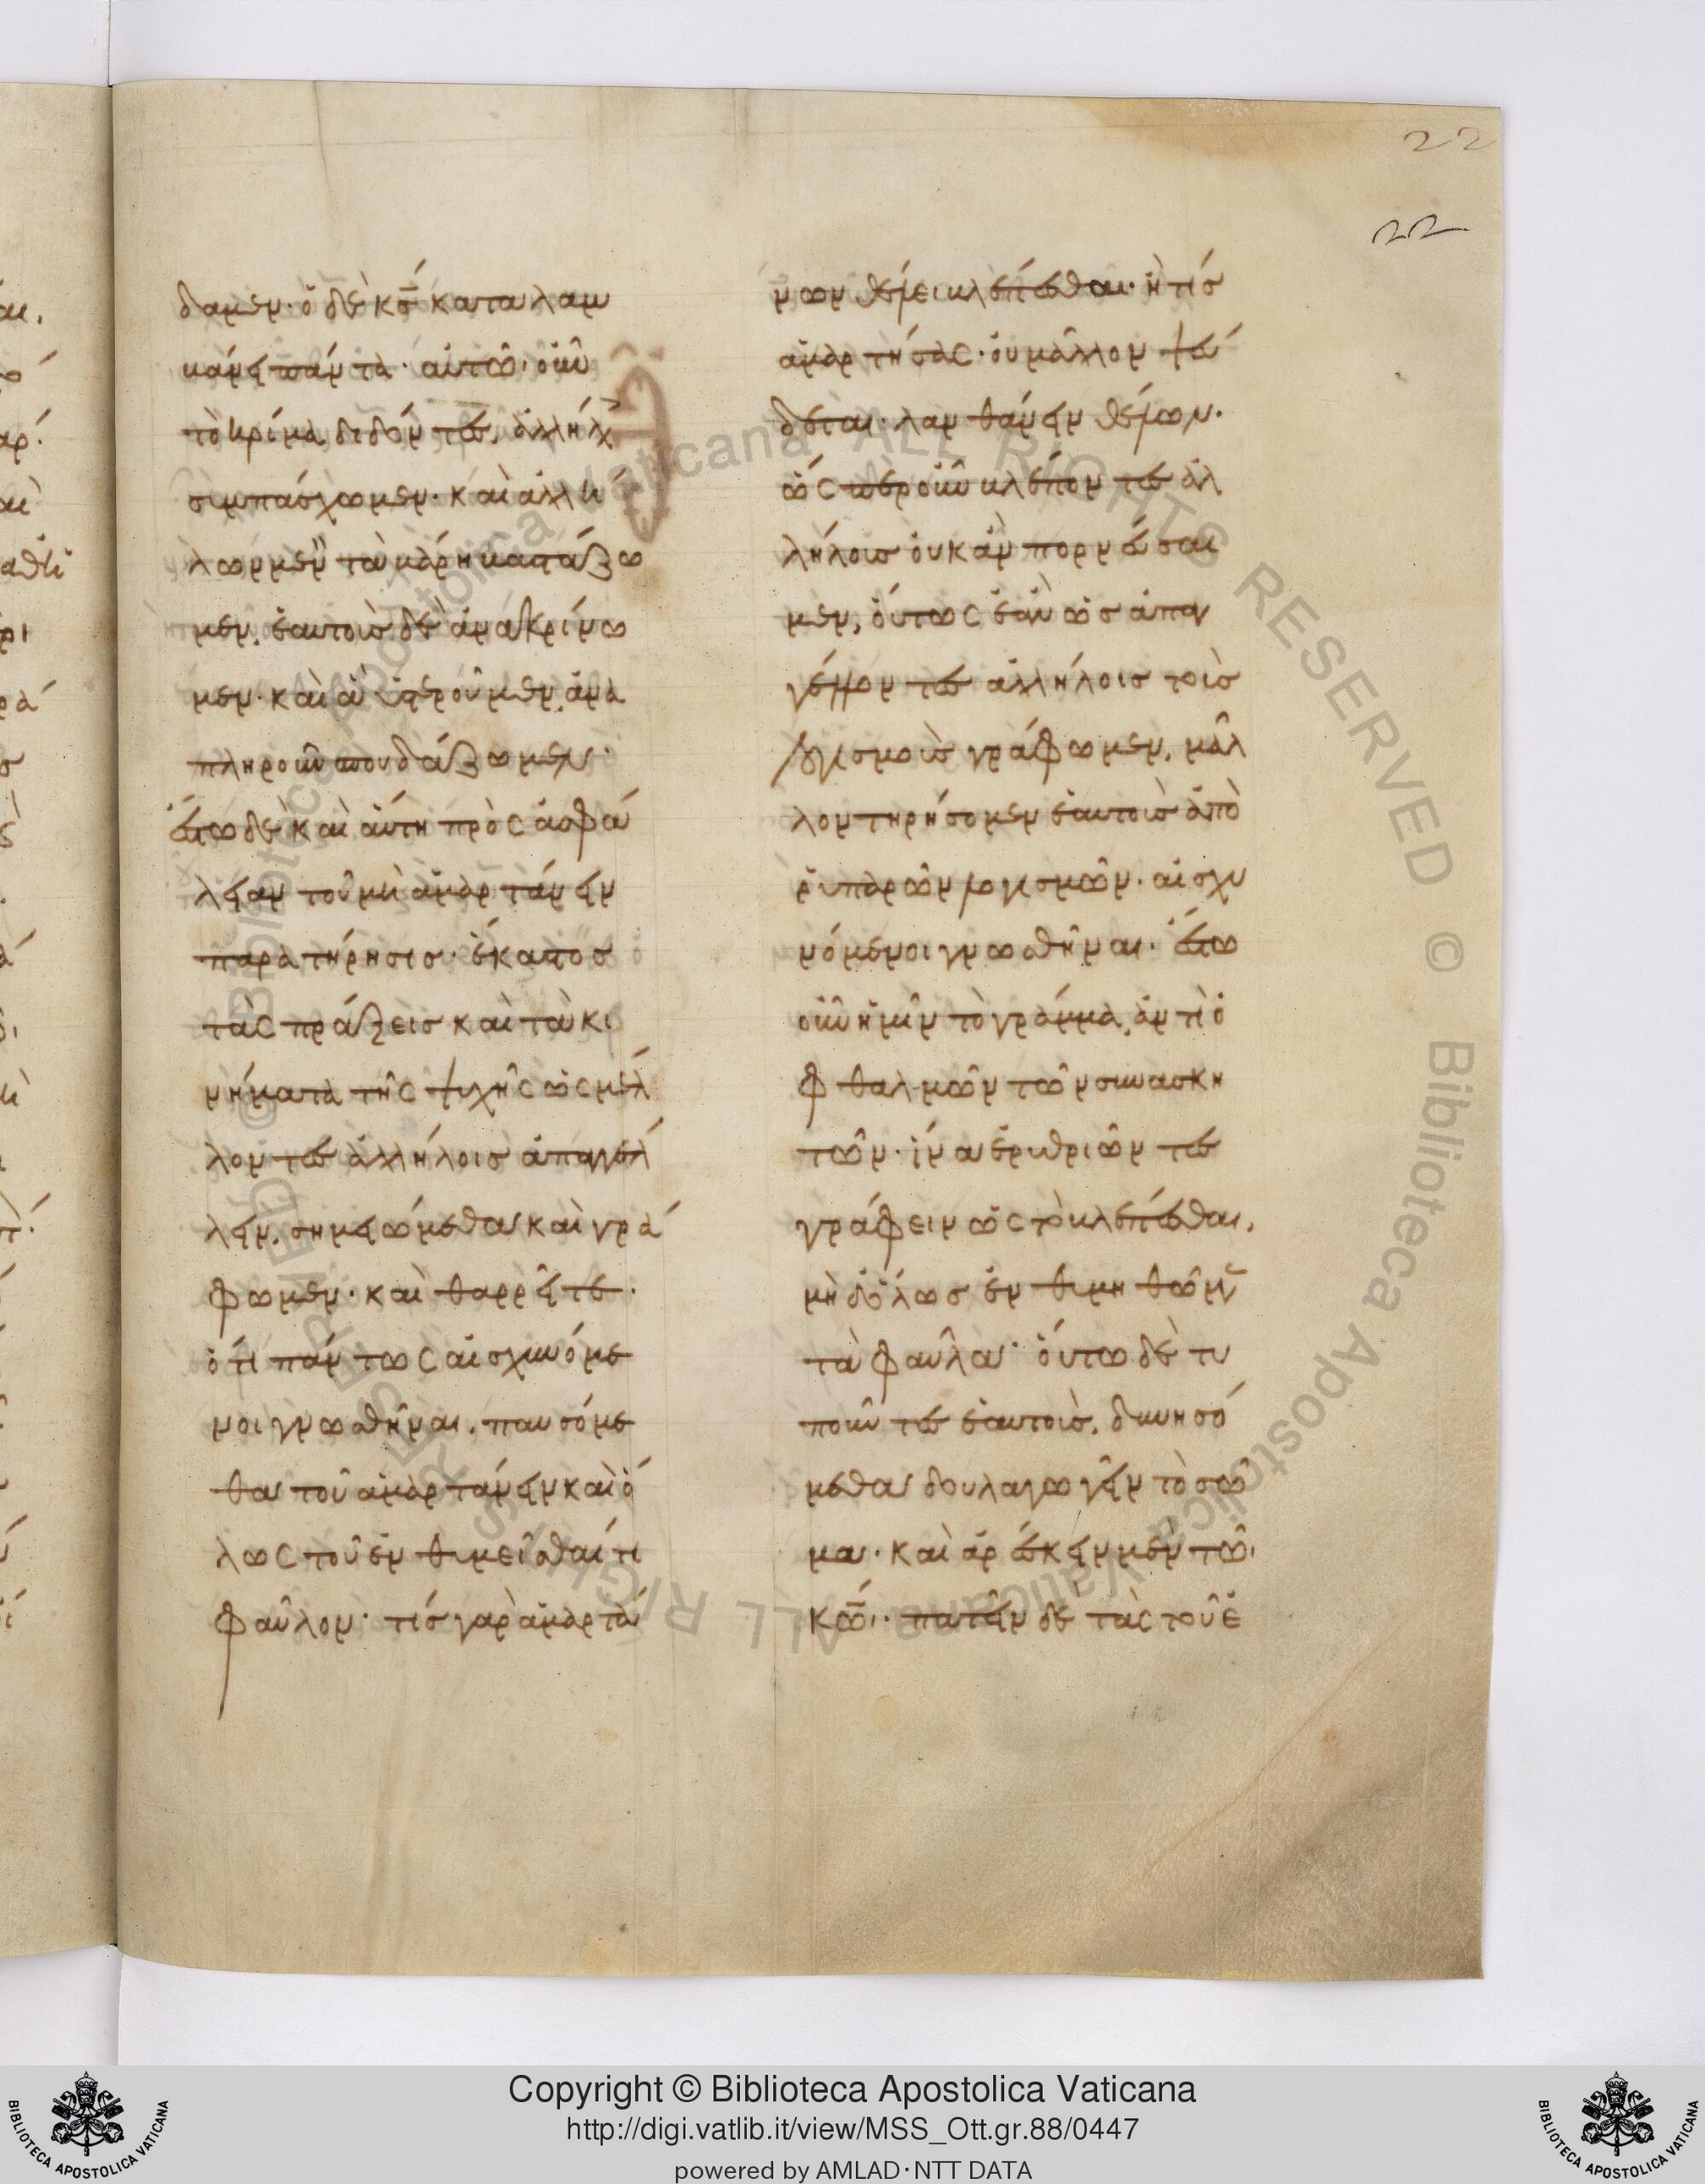 22
22
δαμεν· ὁ δὲ κς̅ καταλαμ
βάνει πάντα· αὐτῶ· οὖν
τὸ κρίμα διδόντες, ἀλλήλοις
συμπάσχωμεν· καὶ ἀλλή
λων μὲν τὰ βάρη βαστάζω
μεν, ἑαυτοὺς δὲ ἀνακρίνω
μεν· καὶ ἃ ὑστεροῦμεν, ἀνα
πληροῦν σπουδάζωμεν·
ἔστω δὲ καὶ αὕτη πρὸς ἀσφά
λειαν τοῦ μὴ ἁμαρτάνειν
παρατήρησις· ἕκαστος
τὰς πράξεις καὶ τὰ κι
νήματα τῆς ψυχῆς ὡς μέλ
λοντες ἀλλήλοις ἀπαγγέλ
λειν, σημειώμεθα καὶ γρά
φωμεν· καὶ θαρρεῖτε·
ὅτι πάντως αἰσχυνόμε
νοι γνωσθῆναι, παυσόμε
θα τοῦ ἁμαρτάνειν καὶ ὅ
λως τοῦ ἐνθυμεῖσθαί τι
φαῦλον· τίς γὰρ ἁμαρτά
νων θέλει βλέπεσθαι· ἢ τίς
ἁμαρτήσας· οὐ μᾶλλον ψεύ
δεται· λανθάνειν θέλων·
ὥσπερ οὖν βλέποντες ἀλ
λήλους οὐκ ἂν πορνεύσαι
μεν, οὕτως ἐὰν ὡς ἀπαγ
γέλλοντες ἀλλήλοις τοὺς
λογισμοὺς γράφωμεν, μᾶλ
λον τηρήσομεν ἑαυτοὺς ἀπὸ
ῥυπαρῶν λογισμῶν· αἰσχυ
νόμενοι γνωσθῆναι· ἔστω
οὖν ἡμῖν τὸ γράμμα, ἀντὶ ὀ
φθαλμῶν τῶν συνασκη
τῶν· ἵνα ἐρυθριῶντες
γράφειν ὡς τὸ βλέπεσθαι,
μηδόλως ἐνθυμηθῶμεν
τὰ φαῦλα· οὕτω δὲ τυ
ποῦντες ἑαυτοὺς, δυνησό
μεθα δουλαγωγεῖν τὸ σῶ
μα· καὶ ἀρέσκειν μὲν τῶ
κω̅· πατεῖν δὲ τὰς τοῦ ἐ
Copyright © Biblioteca Apostolica Vaticana
http://digi.vatlib.it/view/MSS_Ott.gr.88/0447
powered by AMLAD·NTT DATA
BIBLIOTECA APOSTOLICA VATICANA
BIBLIOTECA APOSTOLICA VATICANA
© Biblioteca Apostolica Vaticana ALL RIGHTS RESERVED
© Biblioteca Apostolica Vaticana ALL RIGHTS RESERVED